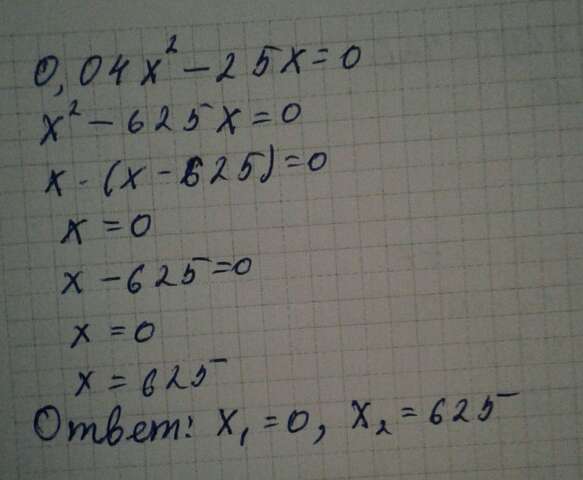 0,04x² - 25x = 0
x² - 625x = 0
x · (x - 625) = 0
x = 0
x - 625 = 0
x = 0
x = 625
Ответ: x₁ = 0, x₂ = 625